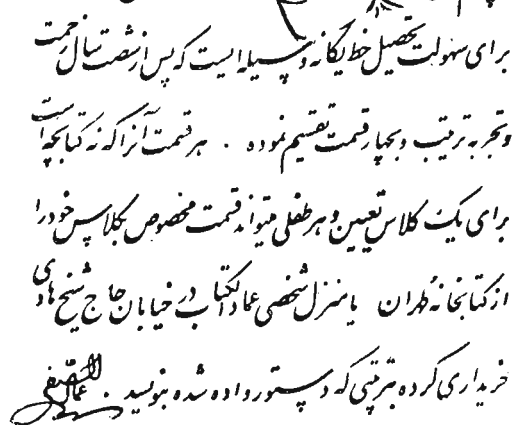 برای سهولت تحصیل خط یگانه وسیله ایست که پس از شصت سال زحمت
و تجربه ترتیب و بچهار قسمت تقسیم نموده . هر قسمت آنرا که نه کتابچه است
برای یک کلاس تعیین و هر طفلی میتواند قسمت مخصوص بکلاس خود را
از کتابخانه طهران یا منزل شخصی عماد الکتاب در خیابان حاج شیخ هادی
خریداری کرده بترتیبی که دستور داده شده بنویسد .